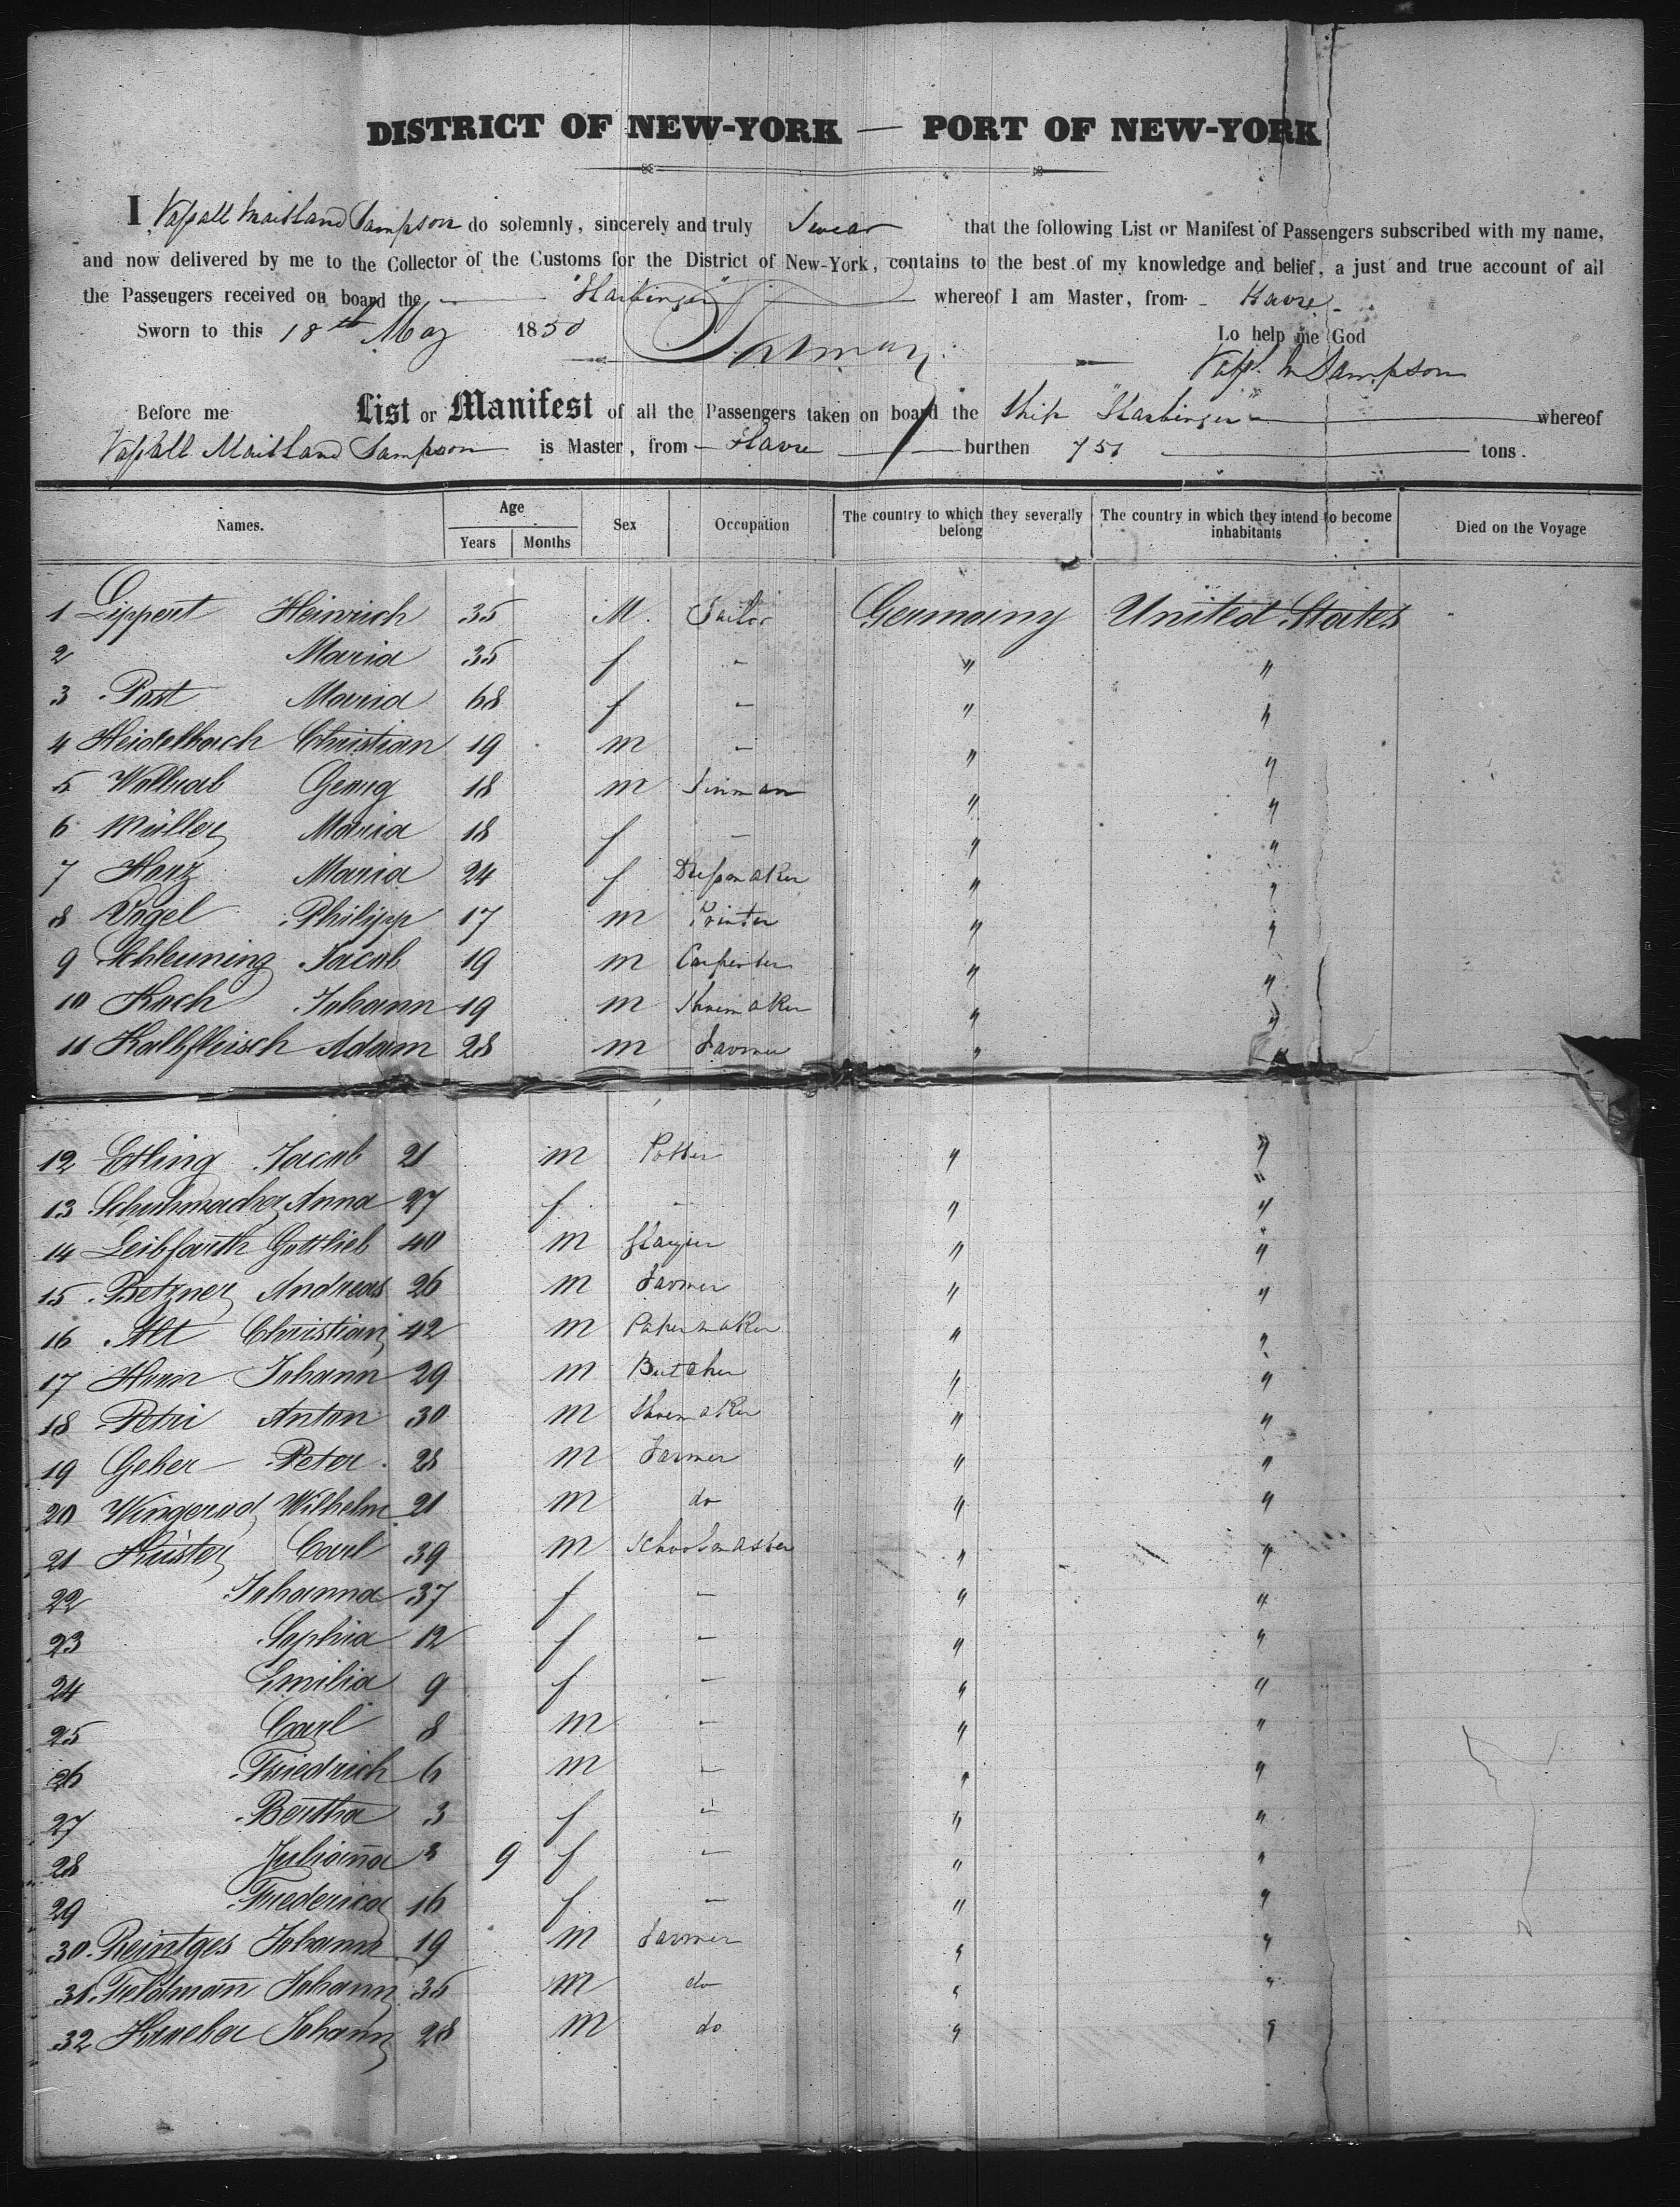 DISTRICT OF NEW-YORK — PORT OF NEW-YORK
I, Vassall Maitland Sampson do solemnly, sincerely and truly Swear that the following List or Manifest of Passengers subscribed with my name,
and now delivered by me to the Collector of the Customs for the District of New-York, contains to the best of my knowledge and belief, a just and true account of all
the Passengers received on board the "Harbinger" whereof I am Master, from Havre
Sworn to this 18th May 1850 So help me God
Vass. M Sampson
Before me List or Manifest of all the Passengers taken on board the Ship "Harbinger" whereof
Vassall Maitland Sampson is Master, from Havre burthen 751 tons.
Names. Age Years Months Sex Occupation The country to which they severally belong The country in which they intend to become inhabitants Died on the Voyage
1 Lippert Heinrich 35 M. Tailor Germany United States
2 Maria 35 f - " "
3 Past Maria 68 f - " "
4 Heidelbach Christian 19 m - " "
5 Georg 18 m Tinman " "
6 Müller Maria 18 f - " "
7 Harz Maria 24 f Dressmaker " "
8 Vogel Philipp 17 m Printer " "
9 Schleuning Jacob 19 m Carpenter " "
10 Koch Johann 19 m Shoemaker " "
11 Kalbfleisch Adam 28 m Farmer " "
12 Etling Jacob 21 m Potter " "
13 Schuhmacher Anna 27 f - " "
14 Leibfarth Gottlieb 40 m " "
15 Betzner Andreas 26 m Farmer " "
16 Alt Christian 42 m Papermaker " "
17 Horn Johann 29 m Butcher " "
18 Petri Anton 30 m Shoemaker " "
19 Geher Peter 28 m Farmer " "
20 Wingerod Wilhelm 21 m do " "
21 Küster Carl 39 m Schoolmaster " "
22 Johanna 37 f - " "
23 Sophia 12 f - " "
24 Emilia 9 f - " "
25 Carl 8 m - " "
26 Friedrich 6 m - " "
27 Bertha 3 f - " "
28 Juliana " 9 f - " "
29 Frederica 16 f - " "
30. Reintges Johann 19 m Farmer " "
31. Feldmann Johann 35 m do " "
32 Johann 28 m do " "